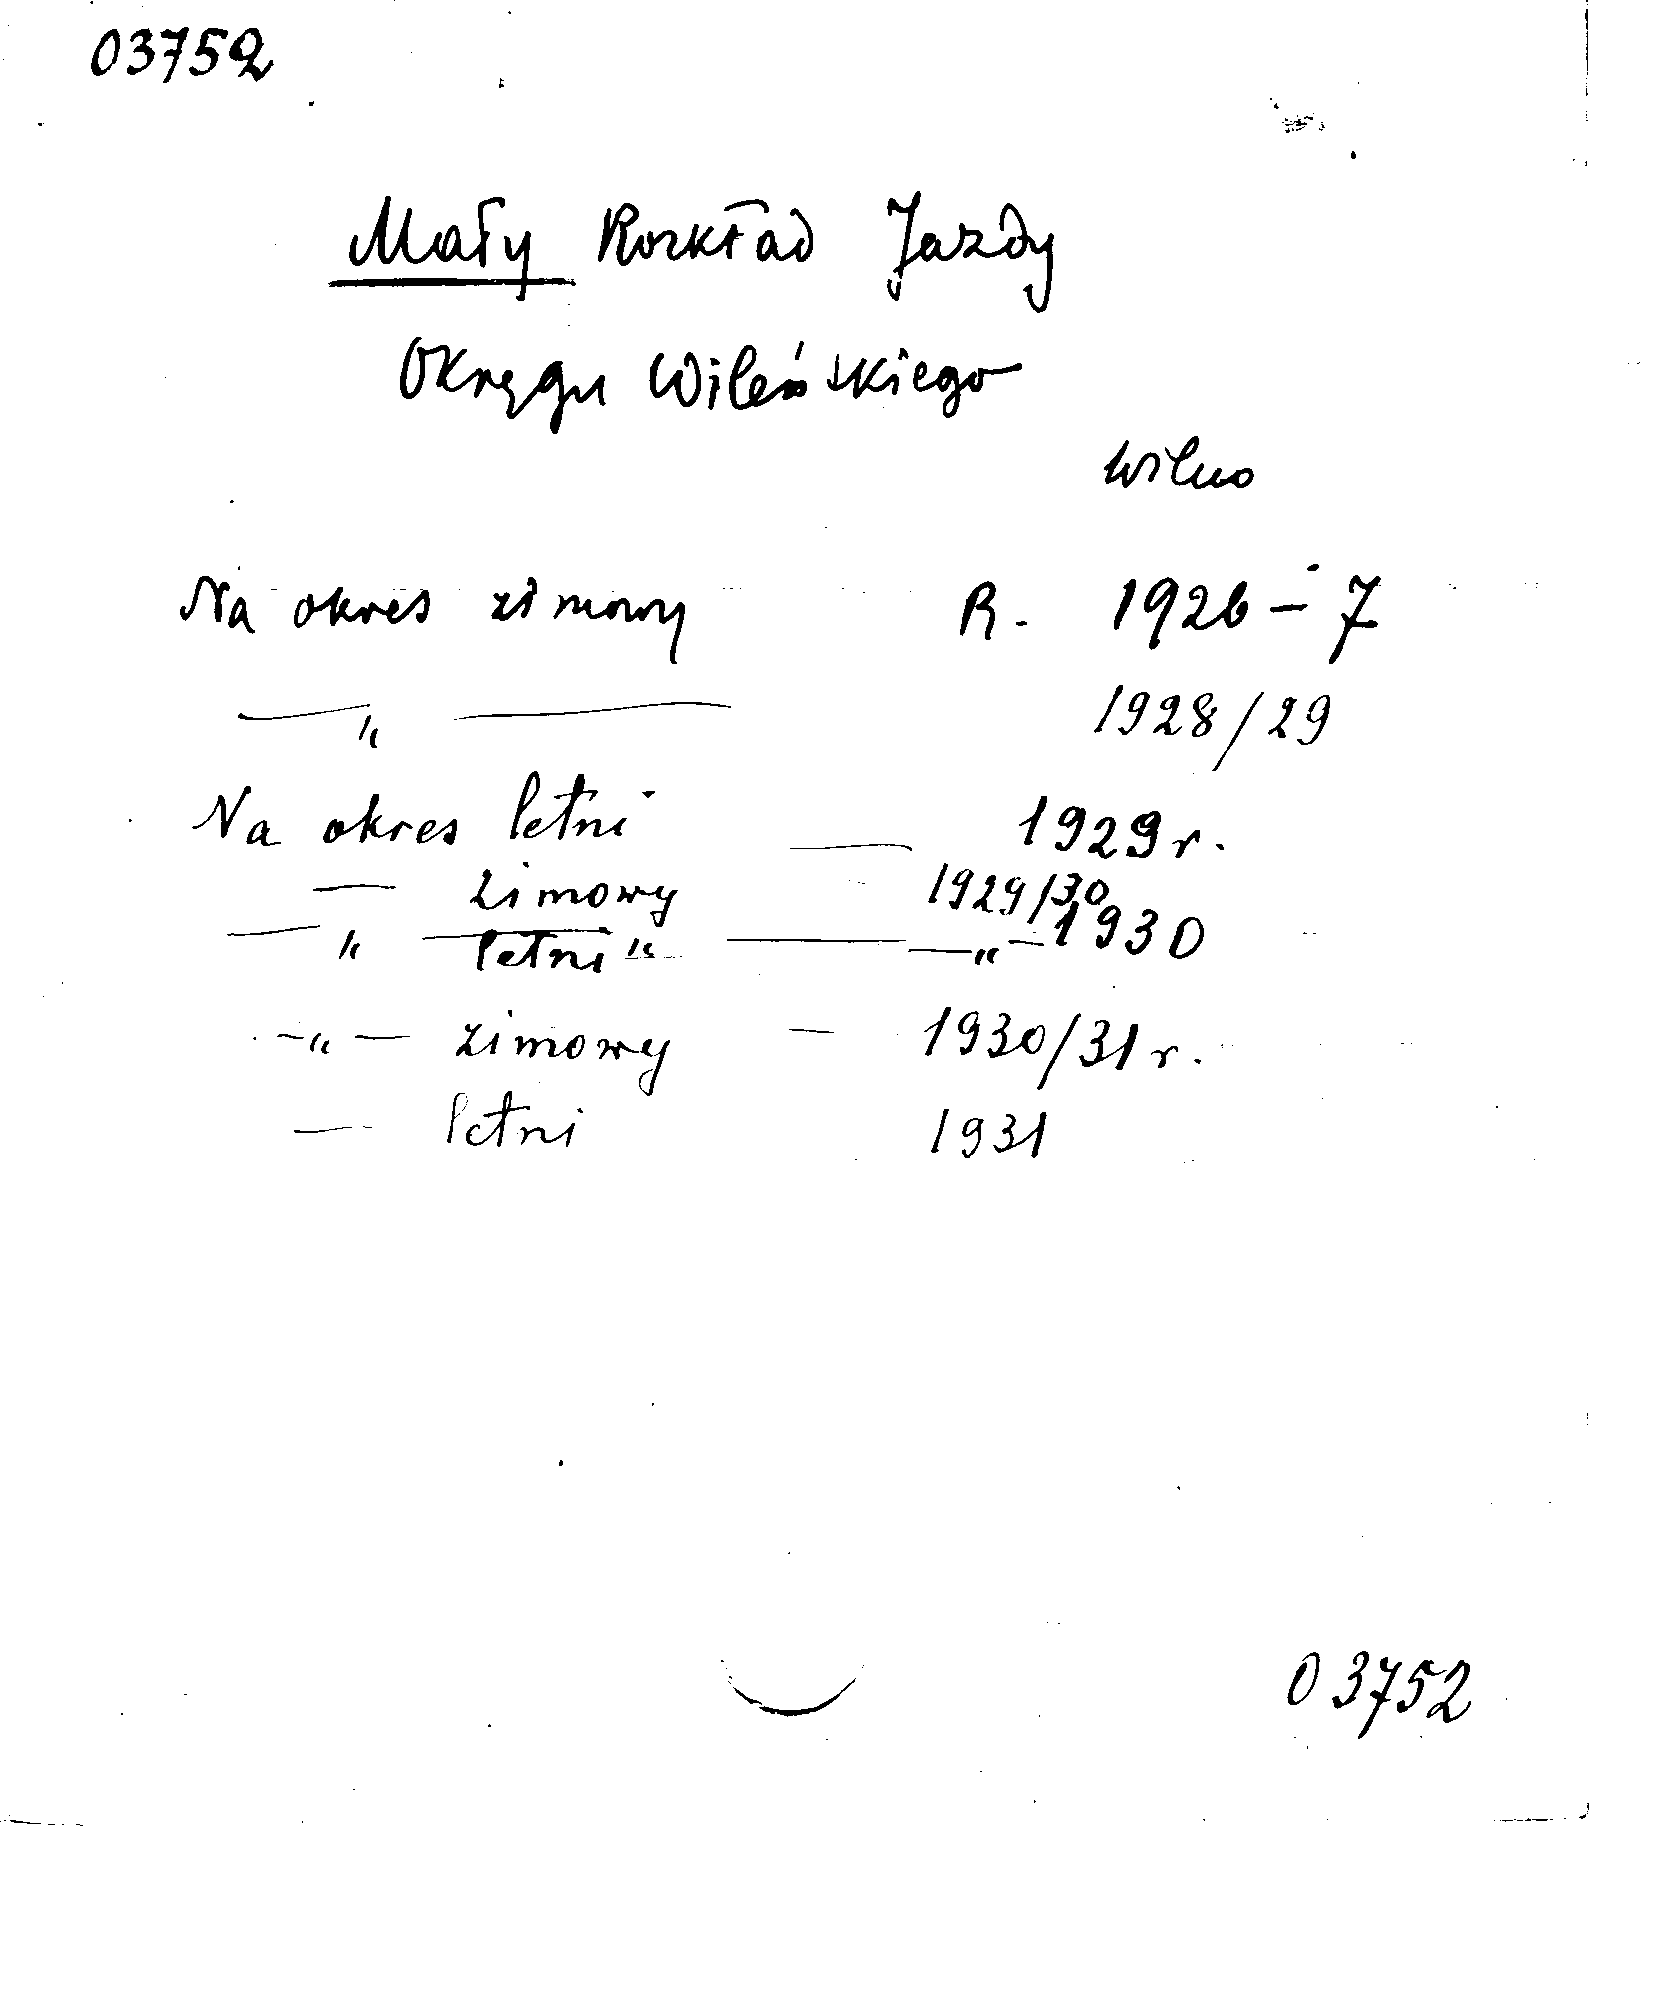 03752
Mały Rozkład Jazdy
Okręgu Wileńskiego
Wilno
Na okres zimowy R. 1926 – 7
— " — 1928/29
Na okres letni — 1929 r.
— zimowy 1929/30
— " — letni " — " – 1930
– " — zimowy – 1930/31 r.
— letni 1931
03752